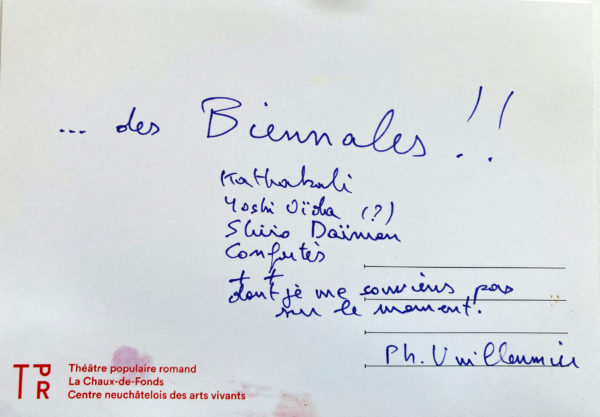 ... des Biennales !!
Kathakali
Yoshi Oïda (?)
Shiro Daïmon
Confutès
+ +
dont je me souviens pas
sur le moment.
Ph. Vuilleumier
TPR
Théâtre populaire romand
La Chaux-de-Fonds
Centre neuchâtelois des arts vivants